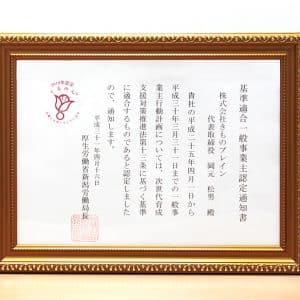 基準適合一般事業主認定通知書
株式会社きものブレイン
代表取締役 岡元 松男 殿
貴社の平成二十五年四月一日から
平成三十年三月三十一日までの一般事
業主行動計画については、次世代育成
支援対策推進法第十三条に基づく基準
に適合するものであると認定しました
ので、通知します。
平成三十一年四月十六日
厚生労働省新潟労働局長